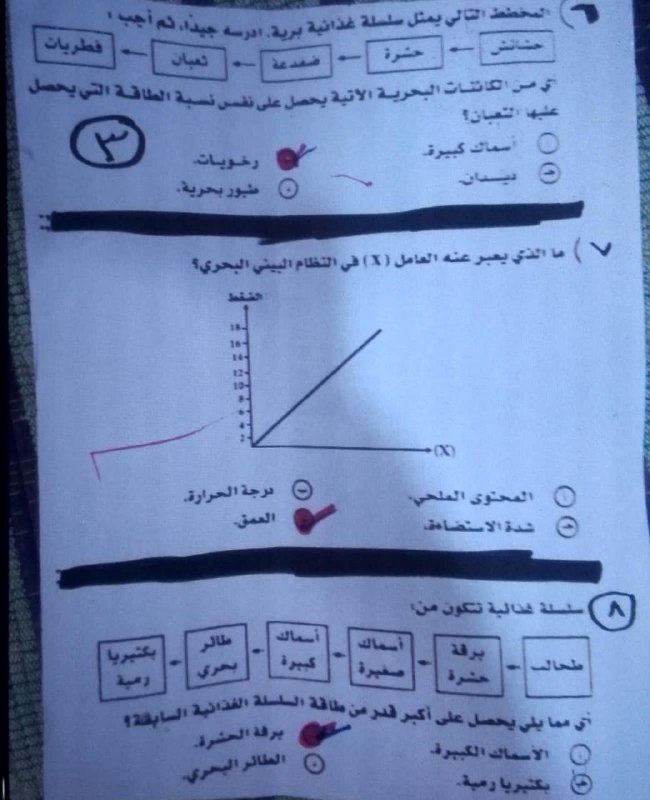 ٦) المخطط التالي يمثل سلسلة غذائية برية، ادرسه جيدًا، ثم أجب :
حشائش ← حشرة ← ضفدعة ← ثعبان ← فطريات
أي من الكائنات البحرية الآتية يحصل على نفس نسبة الطاقة التي يحصل
عليها الثعبان؟
أ أسماك كبيرة. ب رخويات.
ج ديدان. د طيور بحرية.
٣
٧) ما الذي يعبر عنه العامل (X) في النظام البيئي البحري؟
الضغط
18
16
14
12
10
8
6
4
2
(X)
أ المحتوى الملحي. ب درجة الحرارة.
ج شدة الاستضاءة. د العمق.
٨ سلسلة غذائية تتكون من:
طحالب ← يرقة حشرة ← أسماك صغيرة ← أسماك كبيرة ← طائر بحري ← بكتيريا رمية
أي مما يلي يحصل على أكبر قدر من طاقة السلسلة الغذائية السابقة؟
أ الأسماك الكبيرة. ب يرقة الحشرة.
ج بكتيريا رمية. د الطائر البحري.